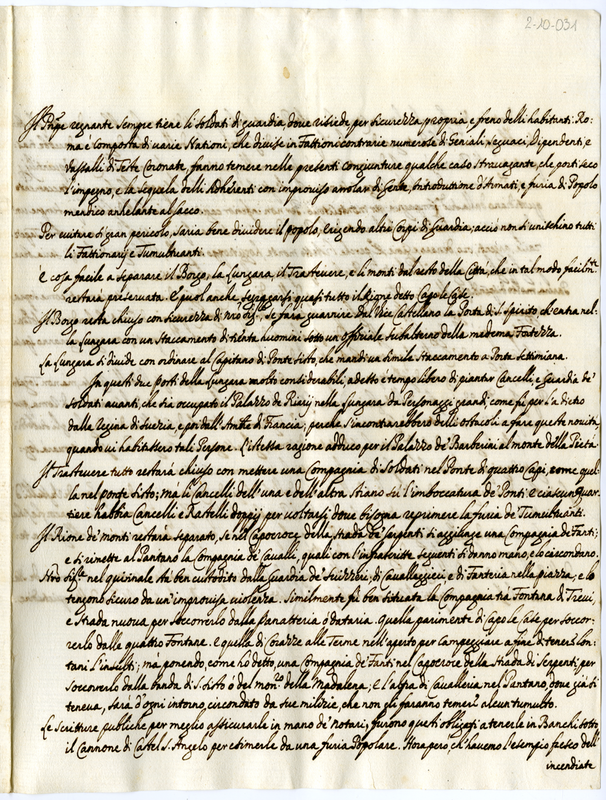 2-10-031
Il Pnpe regnante sempre tiene li soldati di guardia, dove risiede per sicurezza propria e freno delli habitanti. Ro-
ma è composta di varie Nationi, che divise in Fattioni contrarie numerose di Geniali, seguaci, Dipendenti, e
Vassalli di Teste Coronate, fanno temere nelle presenti congiunture qualche caso stravagante, che porti seco
l'impegno, e la sequela delli Adherenti con improviso arrolar di Gente, introduttione d'Armati, e furia di Popolo
mendico anhelante al sacco.
Per evitare sì gran pericolo, saria bene dividere il popolo, erigendo altri Corpi di Guardia; acciò non si unischino tutti
li Fattionarij e Tumultuanti.
È cosa facile a separare il Borgo, la Lungara, il Trastevere, e li monti dal resto della Città, che in tal modo facilmte
restarà preservata. E puol anche segregarsi quasi tutto il Rione detto Capo le Case.
Il Borgo resta chiuso con sicurezza di nro Sigre, se farà guarnire dal Vice Castellano la Porta di S. Spirito ch'entra nel-
la Lungara con un staccamento di trenta huomini sotto un Offitiale subalterno della medema Fortezza.
La Lungara si divide con ordinare al Capitano di Ponte Sisto, che mandi un simile staccamento a Porta Settimiana.
In questi due posti della Lungara molto considerabili, adesso è tempo libero di piantar Cancelli, e guardia de'
soldati avanti, che sia occupato il Palazzo de Riarij nella Lungara da Personaggi grandi, come fù per l'a dietro
dalla Regina di Suezia, e poi dall'Ambre di Francia; perche s'incontrarebbero delli ostacoli a fare queste novità,
quando vi habitassero tali Persone. L'istessa ragione adduco per il Palazzo de' Barberini al monte della Pietà
Il Trastevere tutto restarà chiuso con mettere una Compagnia di Soldati nel Ponte di quattro Capi, come quel-
la nel ponte Sisto; mà li Cancelli dell'una e dell'altra stiano sù l'imboccatura de' Ponti, e ciascun Quar-
tiere habbia Cancelli e Ratelli doppij per voltarsi dove bisogna reprimere la furia de' Tumultuanti.
Il Rione de' monti restarà separato, se nel capocroce della strada de' serpenti si aggiunge una Compagnia de' Fanti;
e si rimette al Pantano la Compagnia de' Cavalli, quali con l'infrascritte seguenti si danno mano, e lo circondano.
Nro Sigre nel quirinale stà ben custodito dalla Guardia de' Suizzeri, di Cavalleggieri, e di Fanteria nella piazza, e lo
tengono sicuro da un'improvisa violenza. Similmente fù ben situata la Compagnia trà Fontana di Trevi,
e Strada nuova per soccorrerlo dalla Panatteria ò Dataria. Quella parimente di Capo le Case per soccor-
rerlo dalle quattro Fontane. E quella di Corazze alle Terme nell'aperto per campeggiare a fine di tener lon-
tani l'insulti; ma ponendo, come hò detto, una Compagnia de' Fanti nel capocroce della strada de' Serpenti per
soccorrerlo dalla banda di S. Sisto ò del monro della Madalena; e l'altra di Cavalleria nel Pantano, dove già si
teneva, sarà d'ogni intorno circondato da sue milizie, che non gli faranno temere alcun tumulto.
Le Scritture publiche per meglio assicurarle in mano de' notari, furono questi obligati a tenerle in Banchi sotto
il Cannone di Castel S. Angelo per esimerle da una furia Popolare. Hora però, ch'havemo l'esempio fresco dell'
incendiate